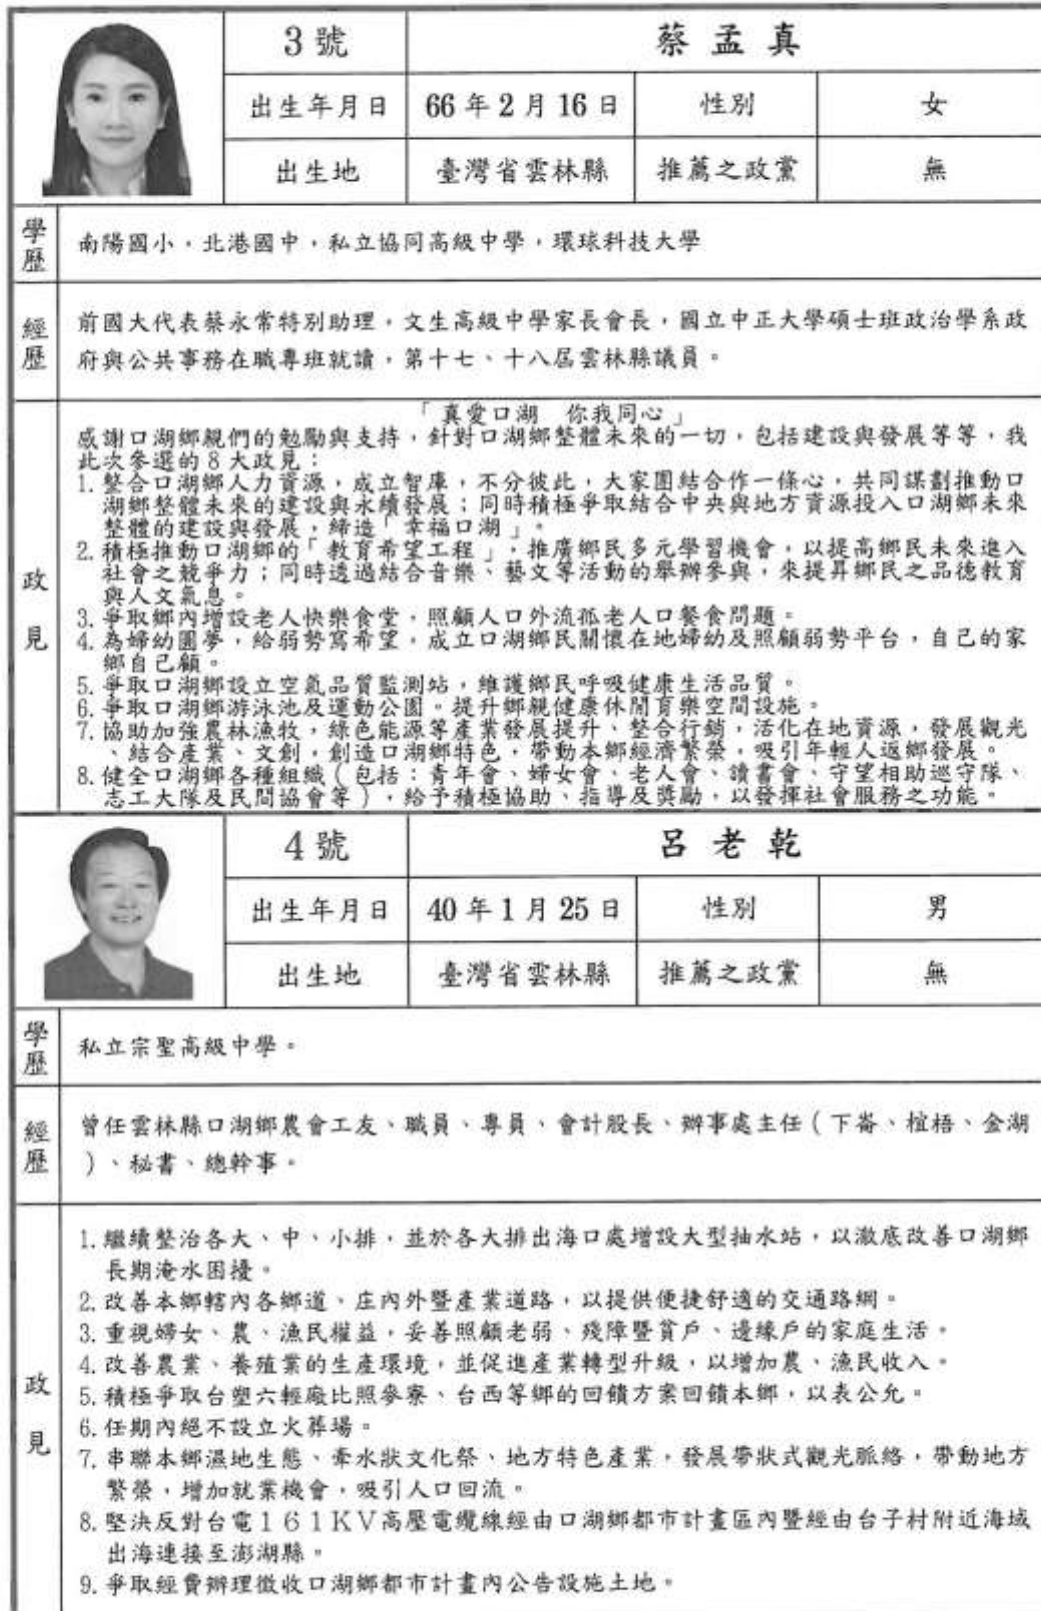 3號 蔡孟真
出生年月日 66年2月16日 性別 女
出生地 臺灣省雲林縣 推薦之政黨 無
學歷 南陽國小，北港國中，私立協同高級中學，環球科技大學
經歷 前國大代表蔡永常特別助理，文生高級中學家長會長，國立中正大學碩士班政治學系政
府與公共事務在職專班就讀，第十七、十八屆雲林縣議員。
政見
「真愛口湖　你我同心」
感謝口湖鄉親們的勉勵與支持，針對口湖鄉整體未來的一切，包括建設與發展等等，我
此次參選的8大政見：
1.整合口湖鄉人力資源，成立智庫，不分彼此，大家團結合作一條心，共同謀劃推動口
湖鄉整體未來的建設與永續發展；同時積極爭取結合中央與地方資源投入口湖鄉未來
整體的建設與發展，締造「幸福口湖」。
2.積極推動口湖鄉的「教育希望工程」，推廣鄉民多元學習機會，以提高鄉民未來進入
社會之競爭力；同時透過結合音樂、藝文等活動的舉辦參與，來提昇鄉民之品德教育
與人文氣息。
3.爭取鄉內增設老人快樂食堂，照顧人口外流孤老人口餐食問題。
4.為婦幼圓夢，給弱勢寫希望，成立口湖鄉民關懷在地婦幼及照顧弱勢平台，自己的家
鄉自己顧。
5.爭取口湖鄉設立空氣品質監測站，維護鄉民呼吸健康生活品質。
6.爭取口湖鄉游泳池及運動公園。提升鄉親健康休閒育樂空間設施。
7.協助加強農林漁牧，綠色能源等產業發展提升、整合行銷，活化在地資源，發展觀光
、結合產業、文創，創造口湖鄉特色，帶動本鄉經濟繁榮，吸引年輕人返鄉發展。
8.健全口湖鄉各種組織（包括：青年會、婦女會、老人會、讀書會、守望相助巡守隊、
志工大隊及民間協會等），給予積極協助、指導及獎勵，以發揮社會服務之功能。
4號 呂老乾
出生年月日 40年1月25日 性別 男
出生地 臺灣省雲林縣 推薦之政黨 無
學歷 私立宗聖高級中學。
經歷 曾任雲林縣口湖鄉農會工友、職員、專員、會計股長、辦事處主任（下崙、椬梧、金湖
）、秘書、總幹事。
政見
1.繼續整治各大、中、小排，並於各大排出海口處增設大型抽水站，以澈底改善口湖鄉
長期淹水困擾。
2.改善本鄉轄內各鄉道、庄內外暨產業道路，以提供便捷舒適的交通路網。
3.重視婦女、農、漁民權益，妥善照顧老弱、殘障暨貧戶、邊緣戶的家庭生活。
4.改善農業、養殖業的生產環境，並促進產業轉型升級，以增加農、漁民收入。
5.積極爭取台塑六輕廠比照參寮、台西等鄉的回饋方案回饋本鄉，以表公允。
6.任期內絕不設立火葬場。
7.串聯本鄉濕地生態、牽水狀文化祭、地方特色產業，發展帶狀式觀光脈絡，帶動地方
繁榮，增加就業機會，吸引人口回流。
8.堅決反對台電161KV高壓電纜線經由口湖鄉都市計畫區內暨經由台子村附近海域
出海連接至澎湖縣。
9.爭取經費辦理徵收口湖鄉都市計畫內公告設施土地。